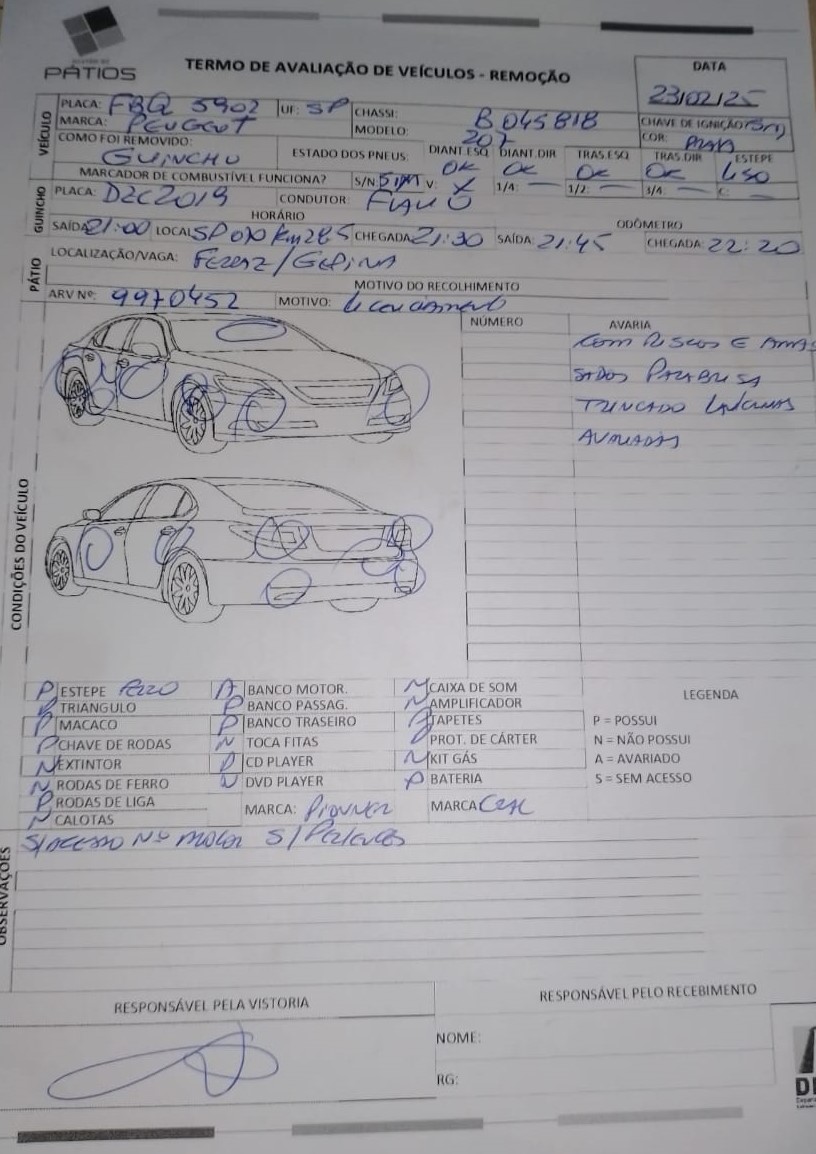 PÁTIOS
TERMO DE AVALIAÇÃO DE VEÍCULOS - REMOÇÃO
DATA
23/02/25
VEÍCULO
PLACA: FBQ 5902 UF: SP CHASSI: B 045818 CHAVE DE IGNIÇÃO (S/N)
MARCA: PEUGEOT MODELO: 207 COR: PRATA
COMO FOI REMOVIDO: GUINCHO ESTADO DOS PNEUS: DIANT.ESQ OK DIANT.DIR OK TRAS.ESQ OK TRAS.DIR OK ESTEPE USO
MARCADOR DE COMBUSTÍVEL FUNCIONA? S/N SIM V: X 1/4: — 1/2: — 3/4: — C: —
GUINCHO
PLACA: DZC2019 CONDUTOR: FLAVIO
HORÁRIO ODÔMETRO
SAÍDA 21:00 LOCAL SP 070 Km285 CHEGADA 21:30 SAÍDA: 21:45 CHEGADA: 22:20
PÁTIO
LOCALIZAÇÃO/VAGA: FERRAZ/
MOTIVO DO RECOLHIMENTO
ARV Nº: 9970452 MOTIVO: Licenciamento
CONDIÇÕES DO VEÍCULO
NÚMERO AVARIA
COM RISCOS E AMAS
SADOS PARABRISA
TRINCADO LANTERNAS
AVARIADAS
P ESTEPE A BANCO MOTOR. N CAIXA DE SOM
TRIANGULO P BANCO PASSAG. N AMPLIFICADOR
P MACACO P BANCO TRASEIRO TAPETES
P CHAVE DE RODAS N TOCA FITAS PROT. DE CÁRTER
N EXTINTOR CD PLAYER N KIT GÁS
N RODAS DE FERRO DVD PLAYER P BATERIA
P RODAS DE LIGA MARCA: PIONNER MARCA
N CALOTAS
LEGENDA
P = POSSUI
N = NÃO POSSUI
A = AVARIADO
S = SEM ACESSO
OBSERVAÇÕES
S/ACESSO Nº MOTOR S/PERTENCES
RESPONSÁVEL PELA VISTORIA
RESPONSÁVEL PELO RECEBIMENTO
NOME:
RG: